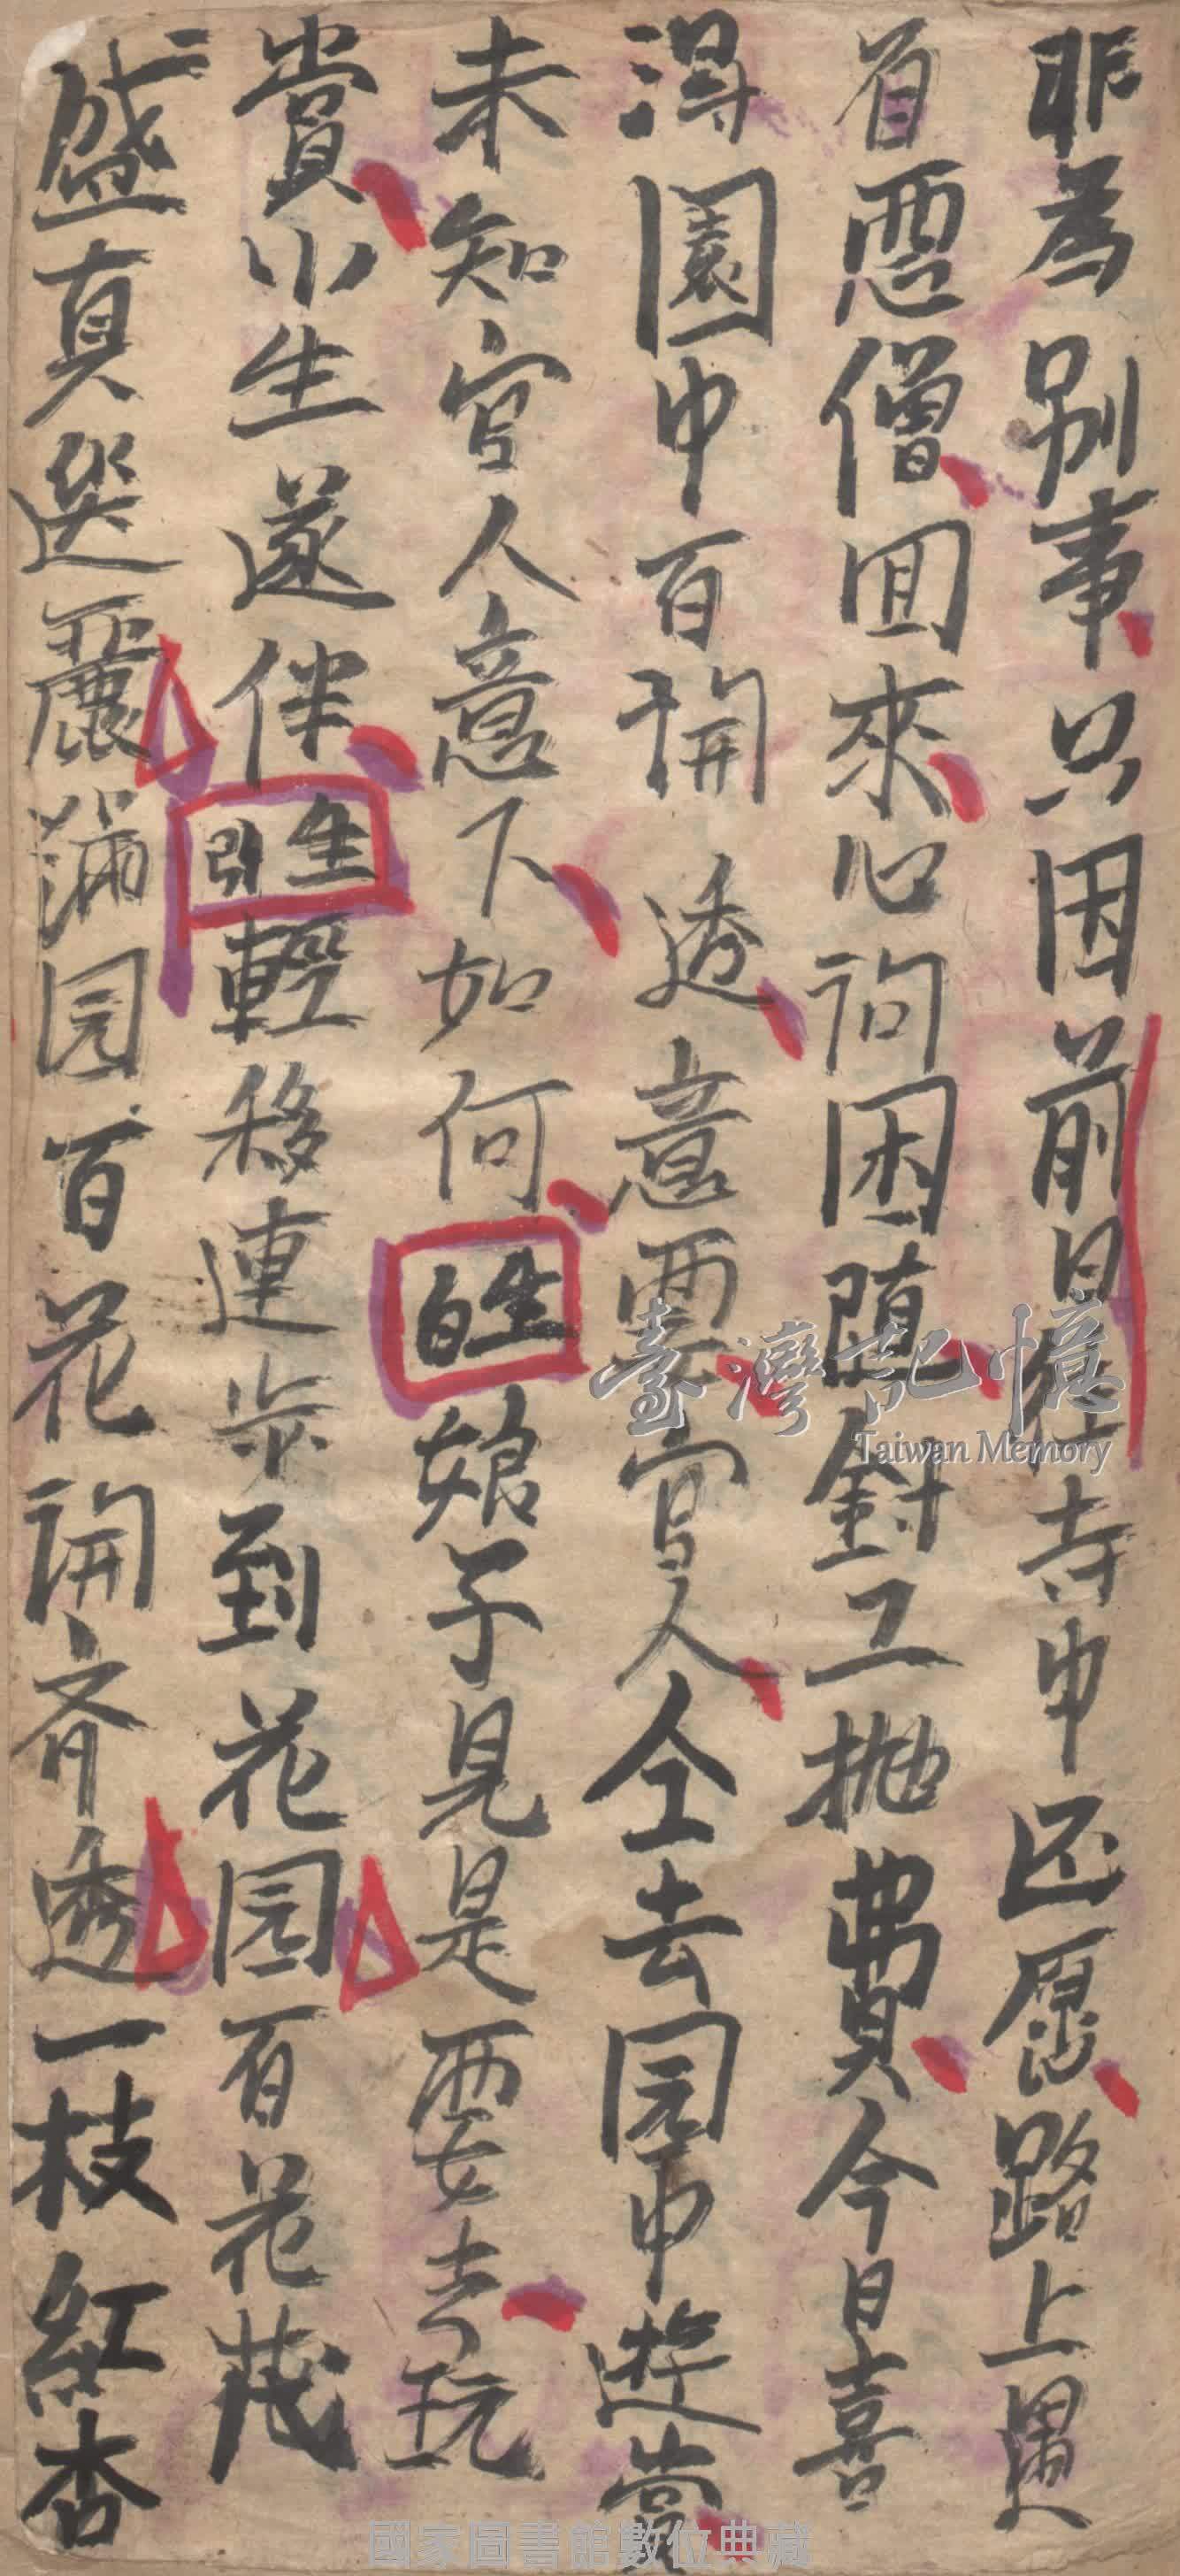 非為別事只因前日在寺中还愿路上遇
首悪僧囬來心祠困随針工抛費今日喜
淂園中百開透意要官人仝去园中遊賞
未知官人意下如何生白娘子見是要去玩
賞小生遂伴生引輕移連步到花园百花茂
盛真選麗滿园百花開齐透一枝紅杏
臺灣記憶
Taiwan Memory
國家圖書館數位典藏